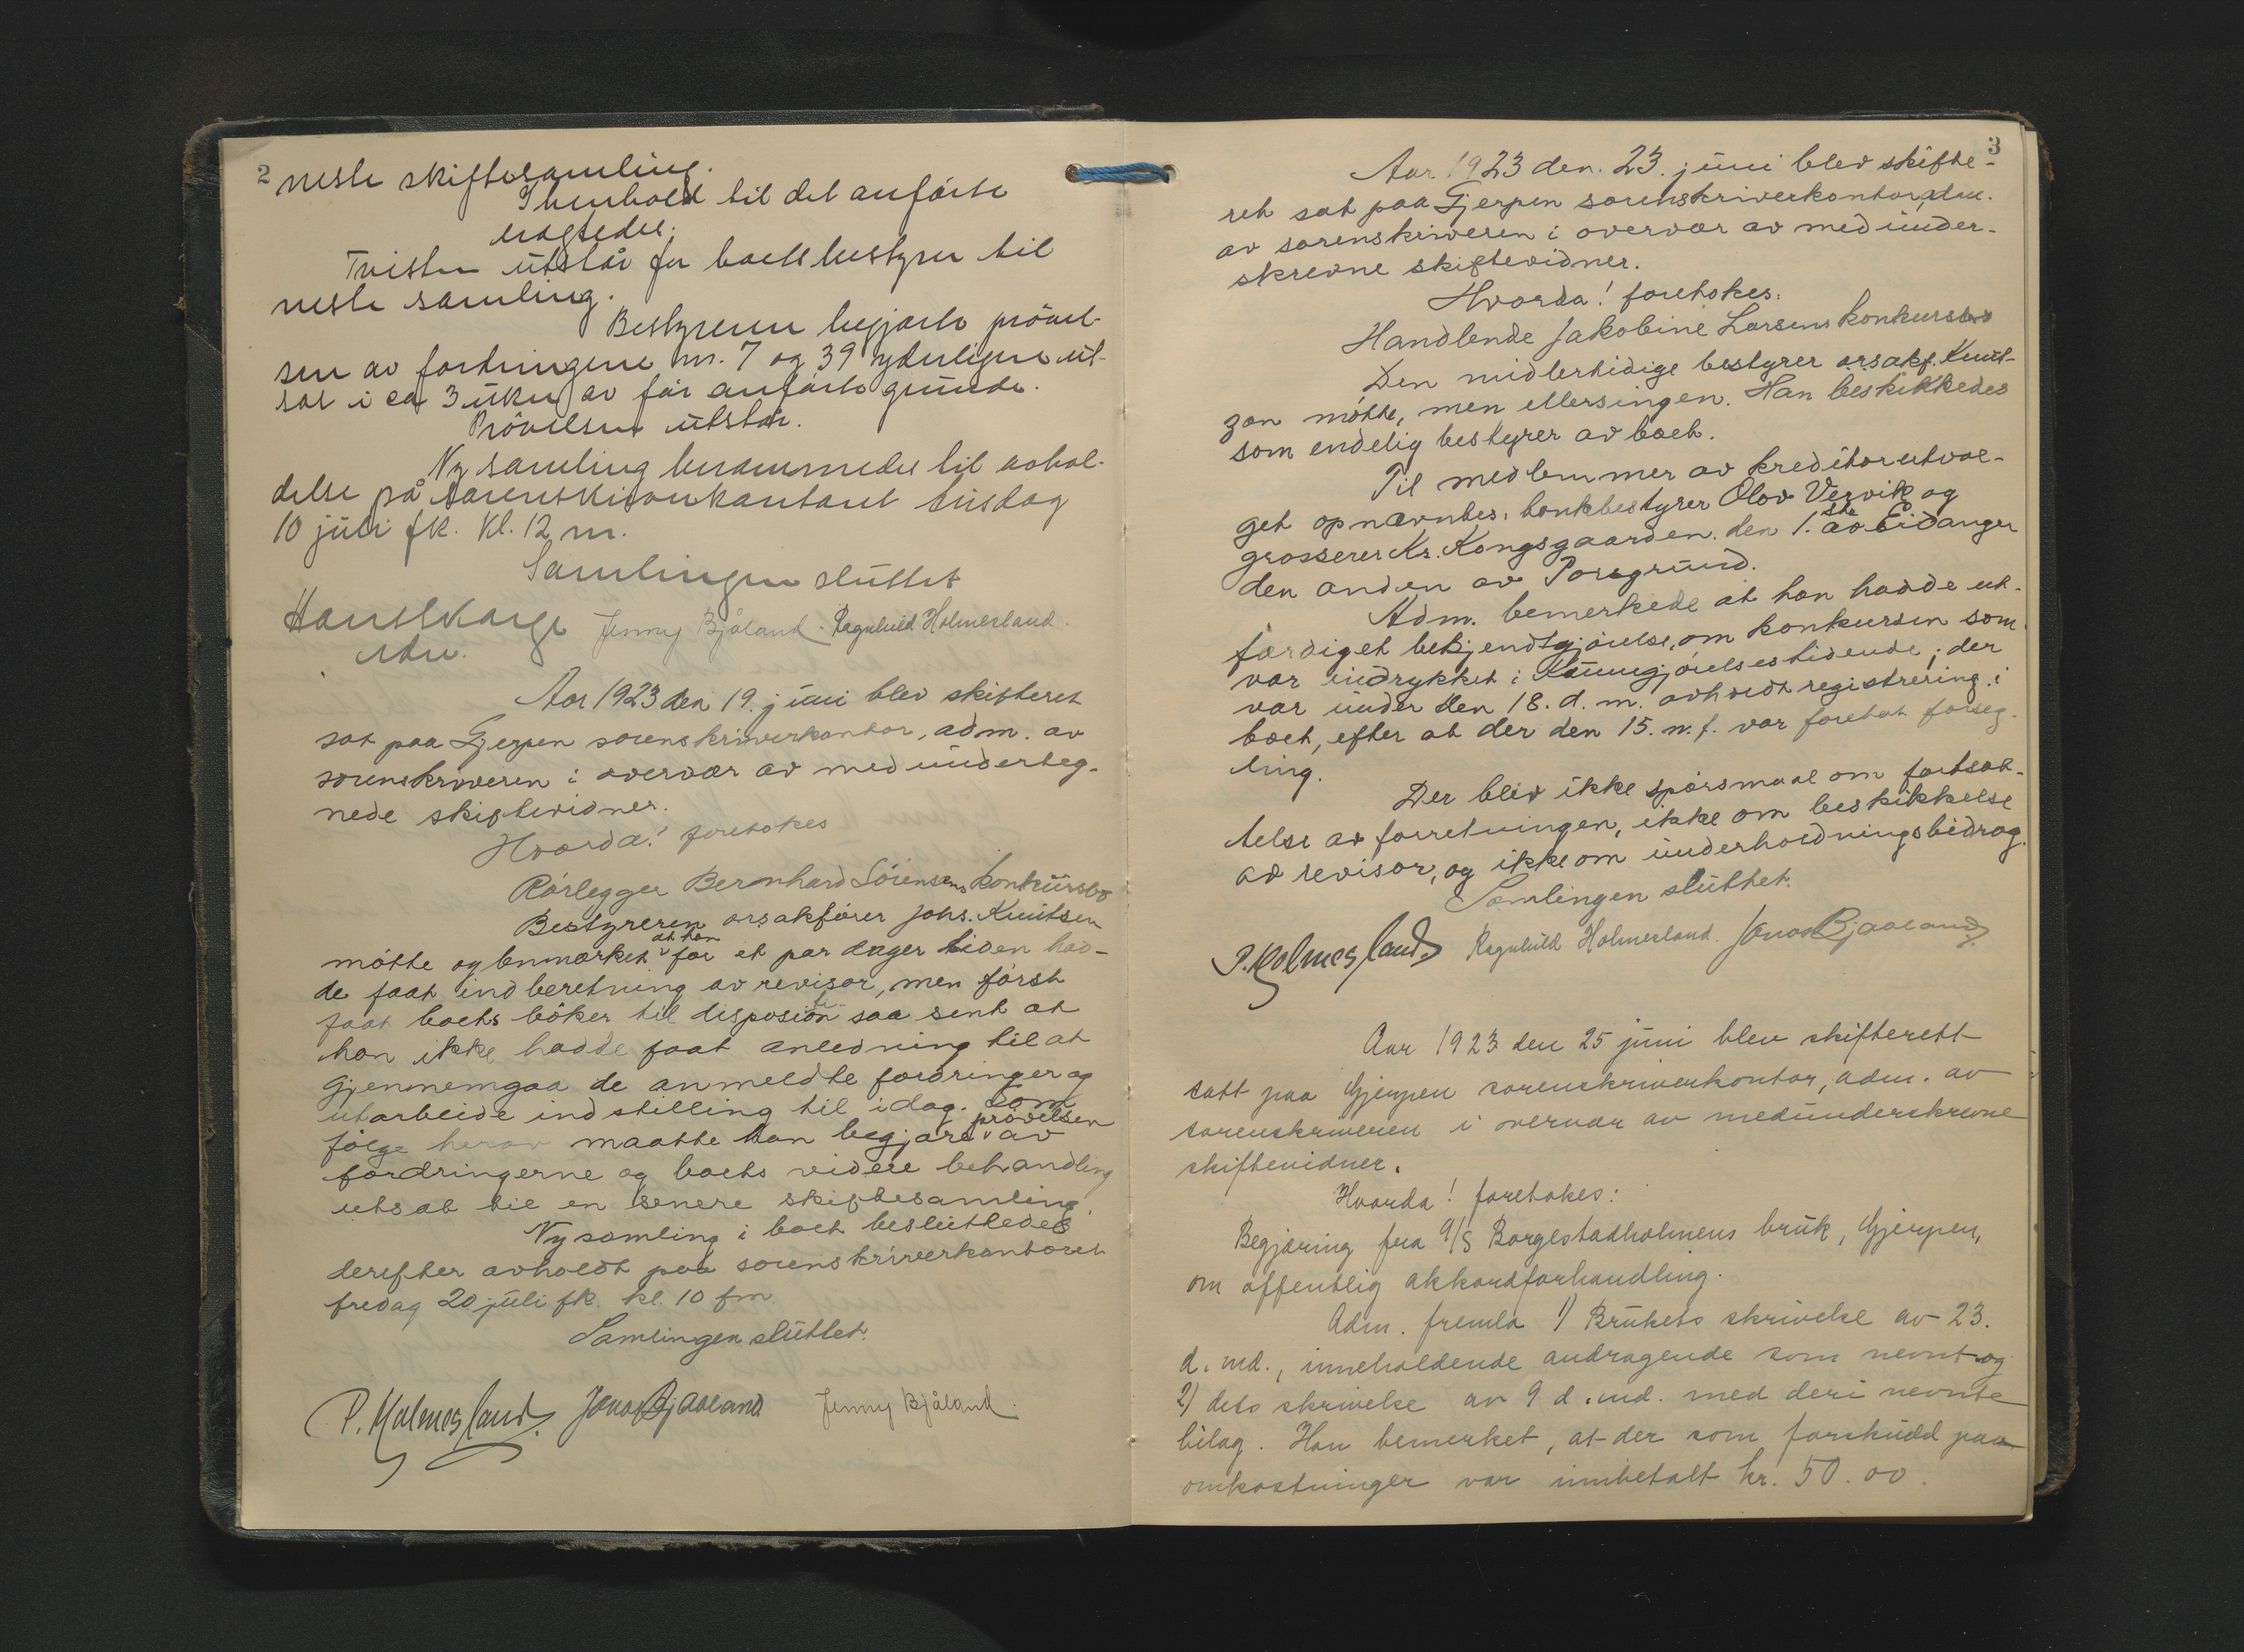 2
neste skiftesamling.
I henhold til det anførte
utsattes
Tvisten utstår for boets bestyrer til
neste samling.
Bestyreren begjærte prøvel-
sen av fordringene nr. 7 og 39 yderligere ut-
sat i ca 3 uker av før anførte grunde.
Prøvelsen utstår.
Ny samling berammedes til avhol-
delse på sorenskriverkontoret tirsdag
10 juli fk. kl. 12 m.
Samlingen sluttet
Jenny Bjåland. Ragnhild Holmesland.
Aar 1923 den 19. juni blev skifteret
sat paa Gjerpen sorenskriverkontor, adm. av
sorenskriveren i overvær av med underteg-
nede skiftevidner.
Hvorda! foretokes
Rørlegger Bernhard Sørensens konkursbo
Bestyreren orsakfører Johs. Knutsen
møtte og bemærket at han for et par dager siden had-
de faat indberetning av revisor, men først
faat boets bøker til disposition saa sent at
han ikke hadde faat anledning til at
gjennemgaa de anmeldte fordringer og
utarbeide indstilling til idag. Som
følge herav maatte han begjære prøvelsen av
fordringerne og boets videre behandling
utsat til en senere skiftesamling.
Ny samling i boet besluttedes
derefter avholdt paa sorenskriverkontoret
fredag 20 juli fk. kl. 10 fm.
Samlingen sluttet.
P. Holmesland. Jonas Bjaaland Jenny Bjåland.
3
Aar 1923 den. 23. juni blev skifte-
ret sat paa Gjerpen sorenskriverkontor, adm.
av sorenskriveren i overvær av med under-
skrevne skiftevidner.
Hvorda! foretokes:
Handlende Jakobine Larsens konkursbo
Den midlertidige bestyrer orsakf. Knut-
zon møtte, men ellers ingen. Han beskikkedes
som endelig bestyrer av boet.
Til medlemmer av kreditorutval-
get opnævntes: bankbestyrer Olov Vervik og
grosserer Kr. Kongsgaarden. den 1.ste av Eidanger
den anden av Porsgrund.
Adm. bemerkede at han hadde ut-
færdiget bekjendtgjørelse, om konkursen som
var indrykket i Kunngjørelsestidende; der
var under den 18. d. m. avholdt registrering i
boet, efter at der den 15. n. f. var foretat forseg-
ling.
Der blev ikke spørsmaal om fortsæt-
telse av forretningen, ikke om beskikkelse
av revisor, og ikke om underholdningsbidrag.
Samlingen sluttet.
P. Holmesland. Ragnhild Holmesland. Jonas Bjaaland
Aar 1923 den 25 juni blev skifterett
satt paa Gjerpen sorenskriverkontor, adm. av
sorenskriveren i overvær av medunderskrevne
skiftevidner.
Hvorda! foretokes:
Begjæring fra A/S Borgestadholmens bruk, Gjerpen,
om offentlig akkordforhandling.
Adm. fremla 1) Brukets skrivelse av 23.
d. md., inneholdende andragende som nevnt og
2) dets skrivelse av 9 d. md. med deri nevnte
bilag. Han bemerket, at der som forskudd paa
omkostninger var innbetalt kr. 50.00.